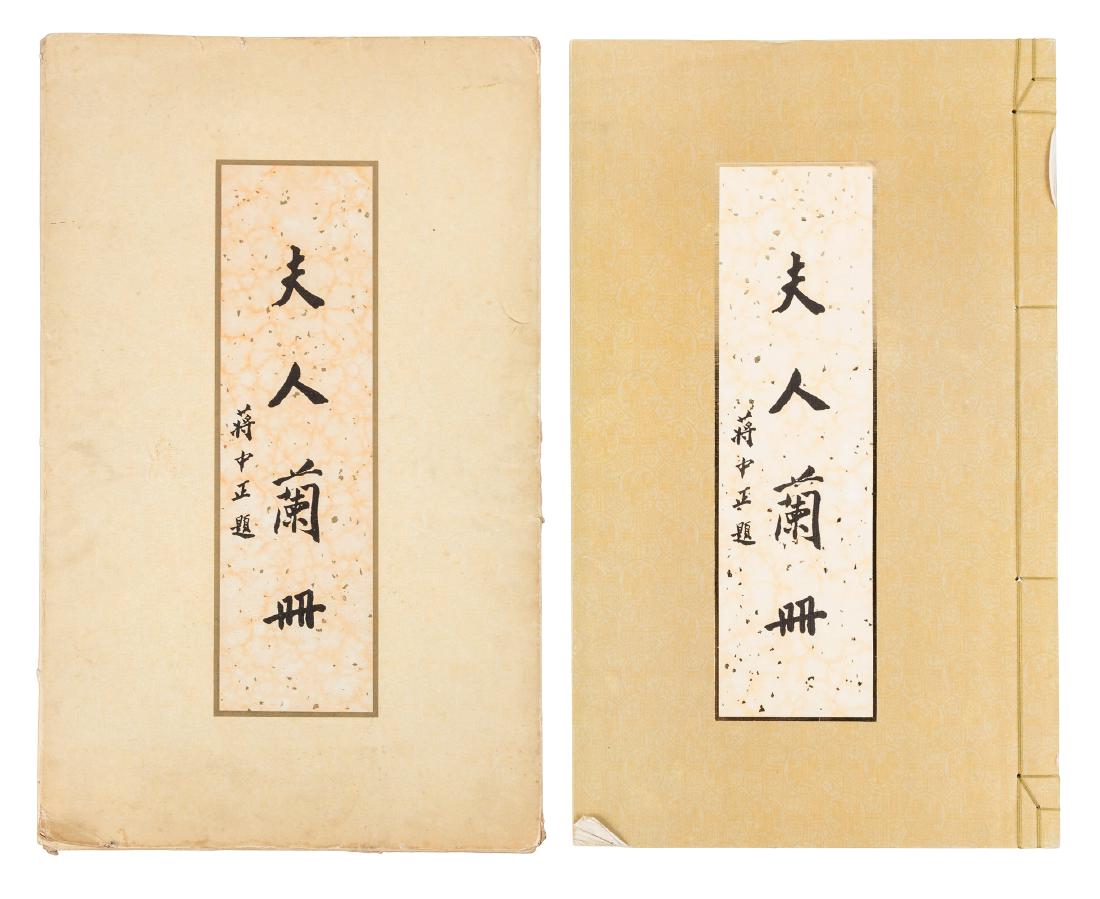 夫人蘭冊
蔣中正題
夫人蘭冊
蔣中正題